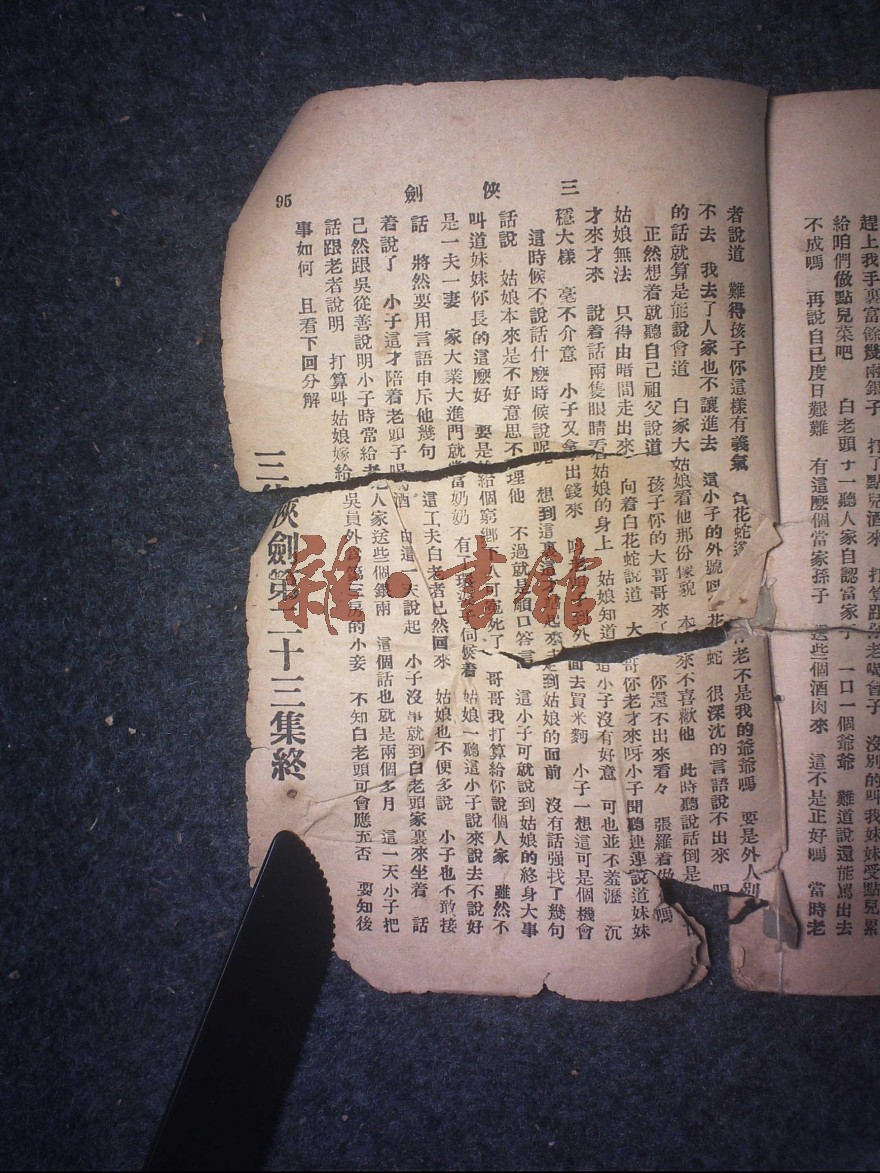 趕上我手裏富餘幾兩銀子 打了點兒酒來 打算跟你老喝會子 沒別的叫我妹妹受點兒累
給咱們做點兒菜吧 白老頭子一聽人家自認當家子 一口一個爺爺 難道說還能罵出去
不成嗎 再說自己度日艱難 有這麽個當家孫子 這些個酒肉來 這不是正好嗎 當時老
三俠劍
95
者說道 難得孩子你這樣有義氣 白花蛇 老不是我的爺爺嗎 要是外人別
不去 我去了人家也不讓進去 這小子的外號叫白花蛇 很深沈的言語說不出來
的話就算是能說會道 白家大姑娘看他那份像貌 本來不喜歡他 此時聽說話倒是
正然想着就聽自己祖父說道 孩子你的大哥哥來了 你還不出來看々 張羅着做 嗎
姑娘無法 只得由暗間走出來 向着白花蛇說道 大哥你老才來呀小子聞聽連連說道妹妹
才來才來 說着話兩隻眼睛看姑娘的身上 姑娘知道這小子沒有好意 可也並不羞澀 沉
穩大樣 毫不介意 小子又拿出錢來 叫老頭子到外面去買米麪 小子一想這可是個機會
這時候不說話什麽時候說呢 想到這裏 站起來走到姑娘的面前 沒有話强找了幾句
話說 姑娘本來是不好意思不理他 不過就是順口答言 這小子可就說到姑娘的終身大事
叫道妹妹你長的這麽好 要是 給個窮鄉下人可冤死了 哥哥我打算給你說個人家 雖然不
是一夫一妻 家大業大進門就當奶奶 有丫環婆子伺候着 姑娘一聽這小子說來說去不說好
話 將然要用言語申斥他幾句 這工夫白老者已然回來 姑娘也不便多說 小子也不敢接
着說了 小子這才陪着老頭子喝酒 由這一天說起 小子沒事就到白老頭家裏來坐着 話
己然跟吳從善說明小子時常給老人家送些個銀兩 這個話也就是兩個多月 這一天小子把
話跟老者說明 打算叫姑娘嫁給吳員外爲第三房的小妾 不知白老頭可會應充否 要知後
事如何 且看下回分解
三俠劍第二十三集終
雜·書館